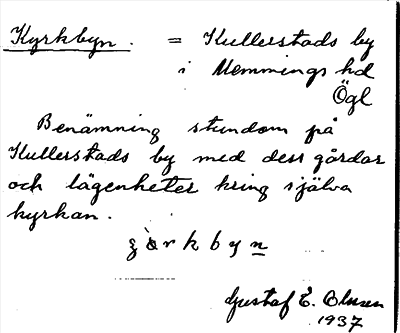 Kyrkbyn. = Kullerstads by
i Memmings hd
Ögl
Benämning stundom på
Kullerstads by med dess gårdar
och lägenheter kring själva
kyrkan.
Gustaf E. Olsson
1937